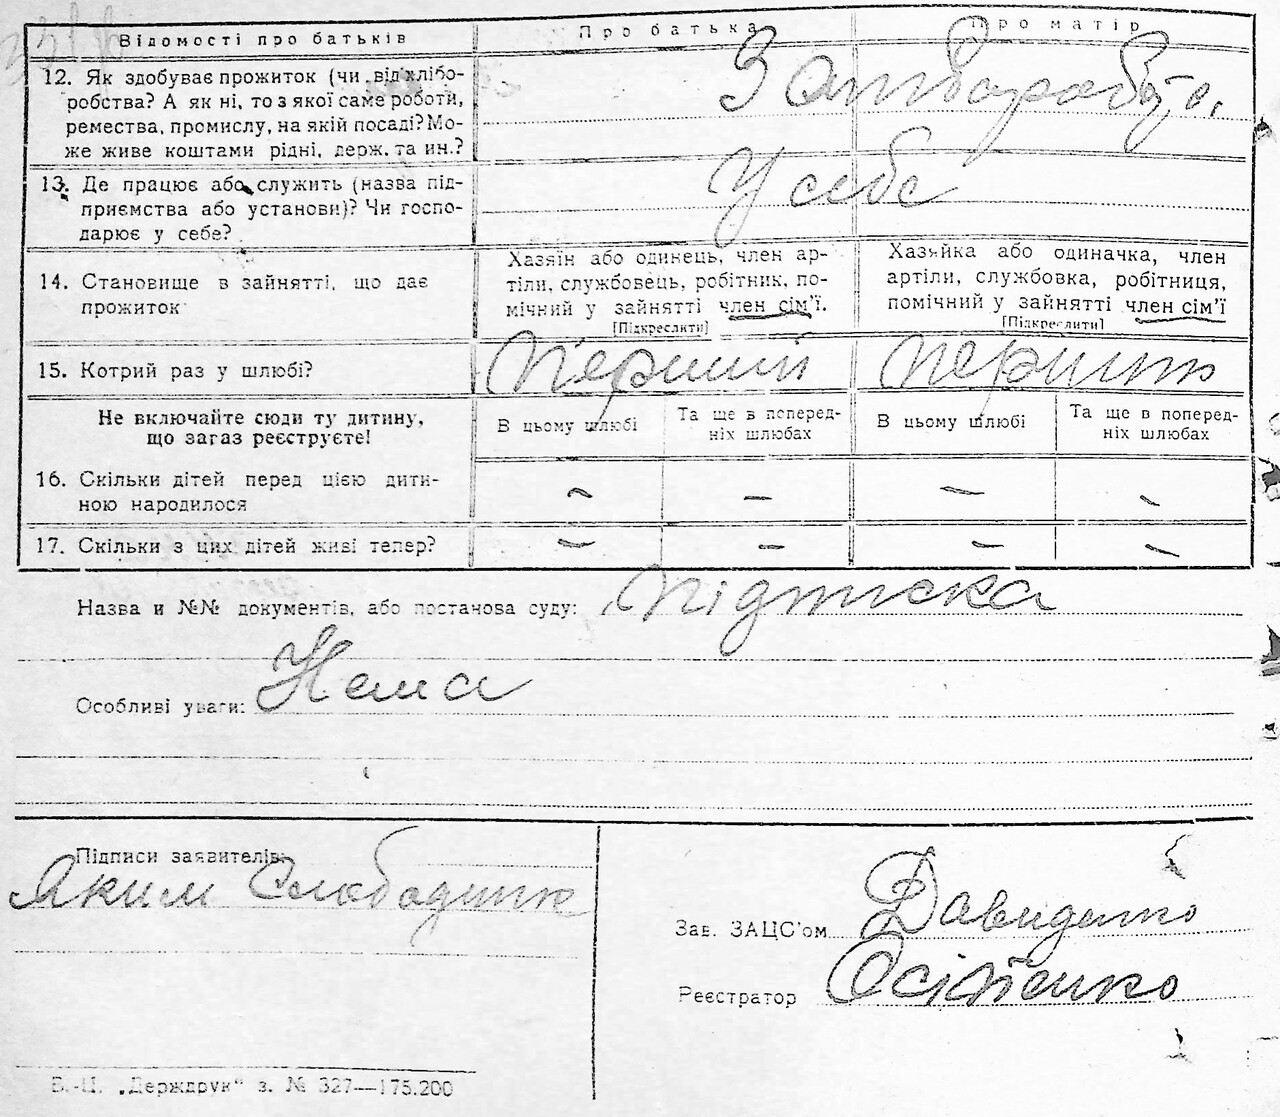 Відомості про батьків Про батька Про матір
12. Як здобуває прожиток (чи від хлібо-
робства? А як ні, то з якої саме роботи,
ремества, промислу, на якій посаді? Мо-
же живе коштами рідні, держ. та ин.?
З
13. Де працює або служить (назва під-
приємства або установи)? Чи госпо-
дарює у себе?
У себе
14. Становище в зайнятті, що дає
прожиток
Хазяїн або одинець, член ар-
тіли, службовець, робітник, по-
мічний у зайнятті член сім'ї.
[Підкреслити]
Хазяйка або одиначка, член
артіли, службовка, робітниця,
помічний у зайнятті член сім'ї
[Підкреслити]
15. Котрий раз у шлюбі? Перший Перший
Не включайте сюди ту дитину,
що зараз реєструєте!
В цьому шлюбі
Та ще в поперед-
ніх шлюбах
В цьому шлюбі
Та ще в поперед-
ніх шлюбах
16. Скільки дітей перед цією дити-
ною народилося
– – – –
17. Скільки з цих дітей живі тепер? – – – –
Назва и №№ документів, або постанова суду: Підписка
Особливі уваги: Нема
Підписи заявителів:
Яким Слободяник
Зав. ЗАЦС'ом Давиденко
Реєстратор Осіпенко
Б.-Ц. „Держдрук" з. № 327—175.200